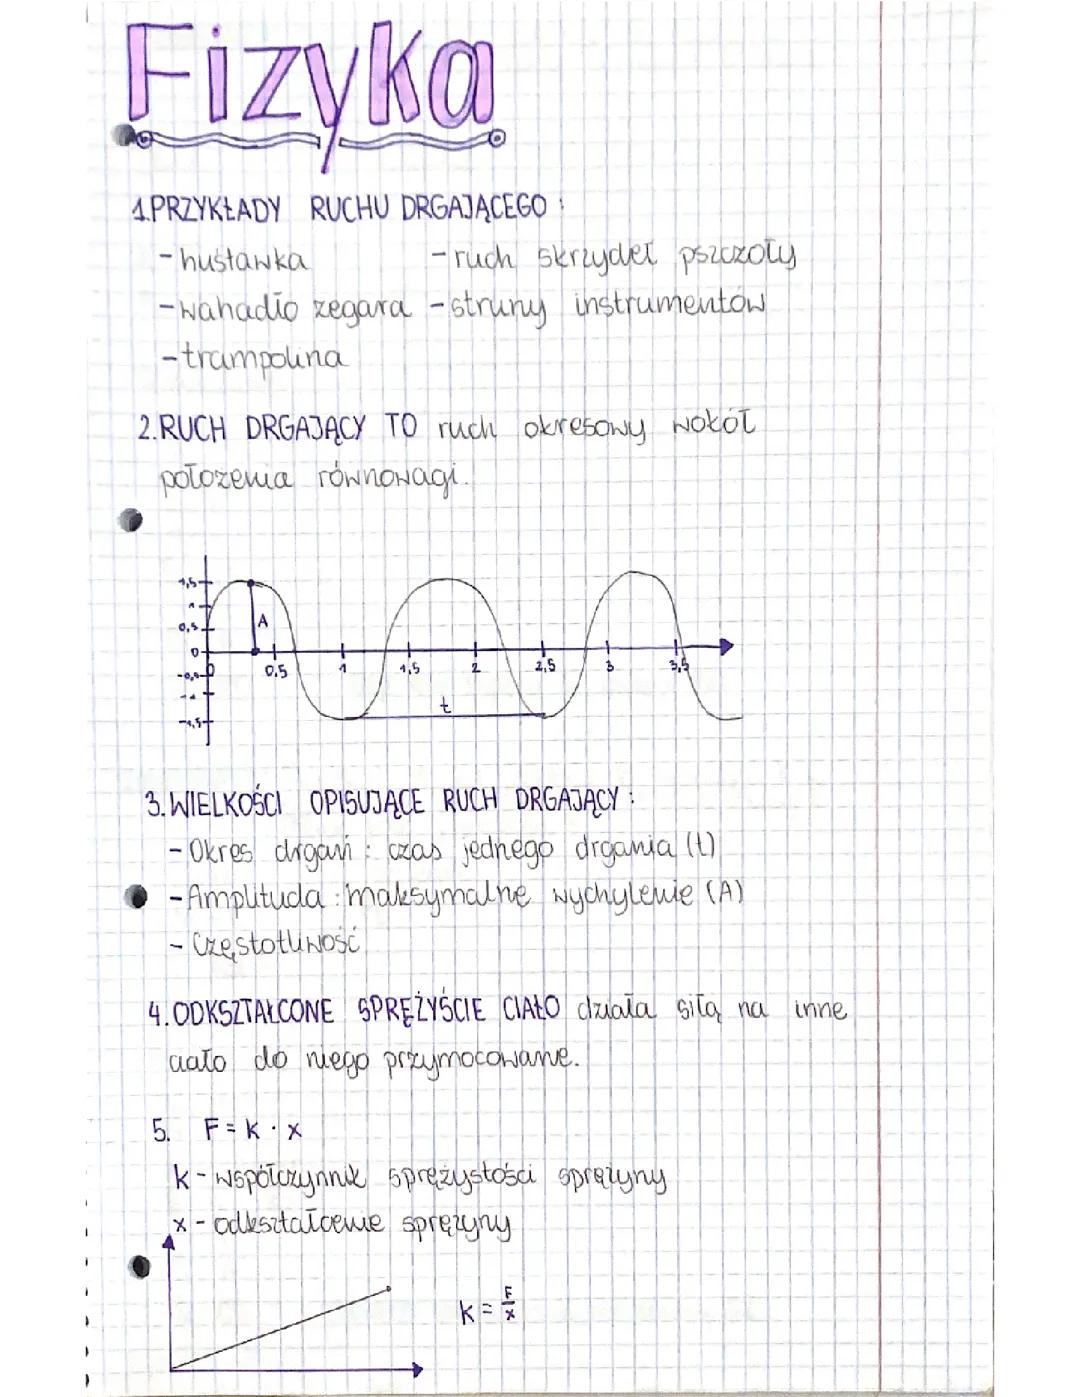 Fizyka
1.PRZYKŁADY RUCHU DRGAJĄCEGO :
- huśtawka - ruch skrzydeł pszczoły
- wahadło zegara - struny instrumentów
- trampolina
2. RUCH DRGAJĄCY TO ruch okresowy wokół
położenia równowagi.
1,5
1
0,5
0
-0,5
-1
-1,5
A
0 0,5 1 1,5 2 2,5 3 3,5
t
3. WIELKOŚCI OPISUJĄCE RUCH DRGAJĄCY :
- Okres drgań : czas jednego drgania (t)
- Amplituda : maksymalne wychylenie (A)
- Częstotliwość
4. ODKSZTAŁCONE SPRĘŻYŚCIE CIAŁO działa siłą na inne
ciało do niego przymocowane.
5. F = k · x
k - współczynnik sprężystości sprężyny
x - odkształcenie sprężyny
k = F/x